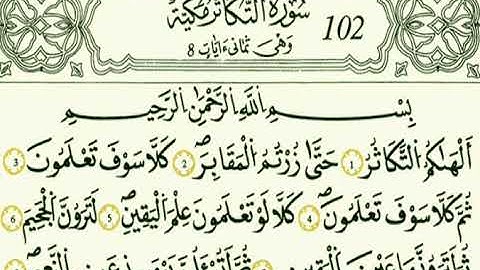 سُورَةُ التَّكَاثُرِ مَكِّيَّةٌ 102
وَهِيَ ثَمَانِي ءَايَاتٍ 8
بِسْمِ اللَّهِ الرَّحْمَٰنِ الرَّحِيمِ
أَلْهَاكُمُ التَّكَاثُرُ 1 حَتَّىٰ زُرْتُمُ الْمَقَابِرَ 2 كَلَّا سَوْفَ تَعْلَمُونَ 3
ثُمَّ كَلَّا سَوْفَ تَعْلَمُونَ 4 كَلَّا لَوْ تَعْلَمُونَ عِلْمَ الْيَقِينِ 5 لَتَرَوُنَّ الْجَحِيمَ 6
ثُمَّ لَتَرَوُنَّهَا عَيْنَ الْيَقِينِ ثُمَّ لَتُسْأَلُنَّ يَوْمَئِذٍ عَنِ النَّعِيمِ